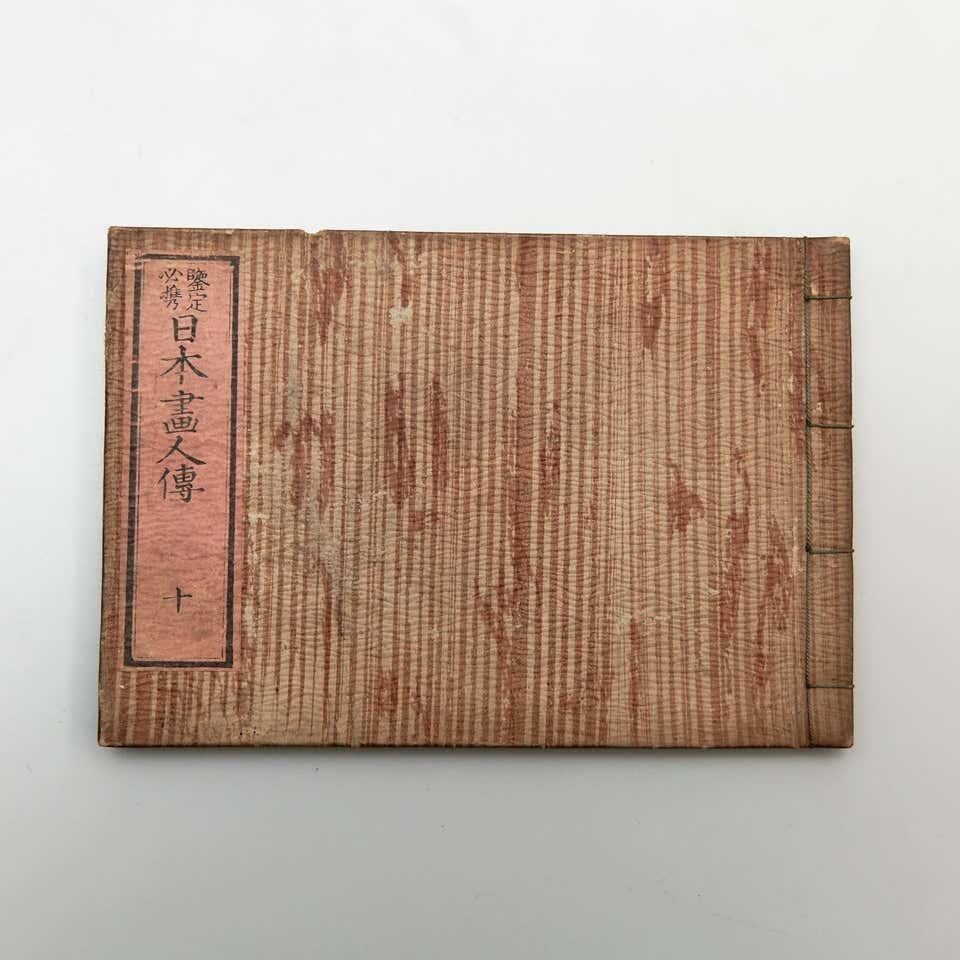 鑒定
必携
日本畫人傳
十